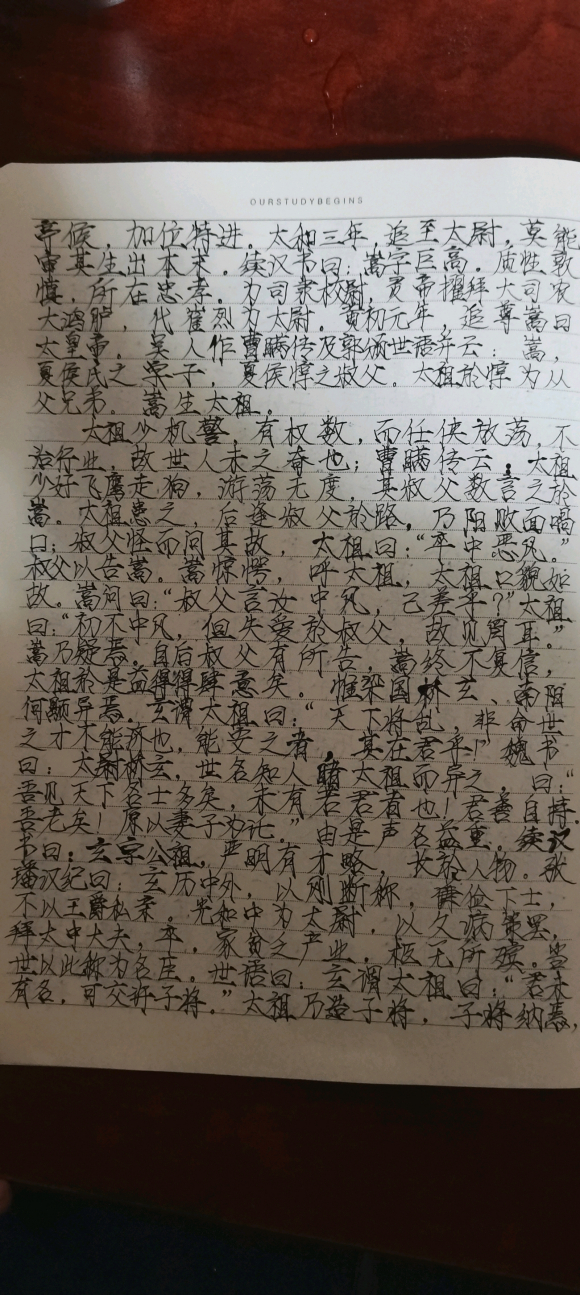 OURSTUDYBEGINS
亭侯，加位特进。太和三年，追至太尉，莫能
审其生出本末。续汉书曰：嵩字巨高。质性敦
慎，所在忠孝。为司隶校尉，灵帝擢拜大司农
大鸿胪，代崔烈为太尉。黄初元年，追尊嵩曰
太皇帝。吴人作曹瞒传及郭颁世语并云：嵩，
夏侯氏之子，夏侯惇之叔父。太祖於惇为从
父兄弟。嵩生太祖。
太祖少机警，有权数，而任侠放荡，不
治行业，故世人未之奇也；曹瞒传云：太祖
少好飞鹰走狗，游荡无度，其叔父数言之於
嵩。太祖患之，后逢叔父於路，乃阳败面喎
口；叔父怪而问其故，太祖曰：“卒中恶风。”
叔父以告嵩。嵩惊愕，呼太祖，太祖口貌如
故。嵩问曰：“叔父言汝中风，已差乎？”太祖
曰：“初不中风，但失爱於叔父，故见罔耳。”
嵩乃疑焉。自后叔父有所告，嵩终不复信，
太祖於是益得得肆意矣。惟梁国桥玄、南阳
何颙异焉。玄谓太祖曰：“天下将乱，非命世
之才不能济也，能安之者，其在君乎！”魏书
曰：太尉桥玄，世名知人，睹太祖而异之，曰：“
吾见天下名士多矣，未有若君者也！君善自持。
吾老矣！原以妻子为讬。”由是声名益重。续汉
书曰：玄字公祖，严明有才略，长於人物。张
璠汉纪曰：玄历中外，以刚断称，谦俭下士，
不以王爵私柔。光和中为太尉，以久病策罢，
拜太中大夫，卒，家贫乏产业，柩无所殡。当
世以此称为名臣。世语曰：玄谓太祖曰：“君未
有名，可交许子将。”太祖乃造子将，子将纳焉，